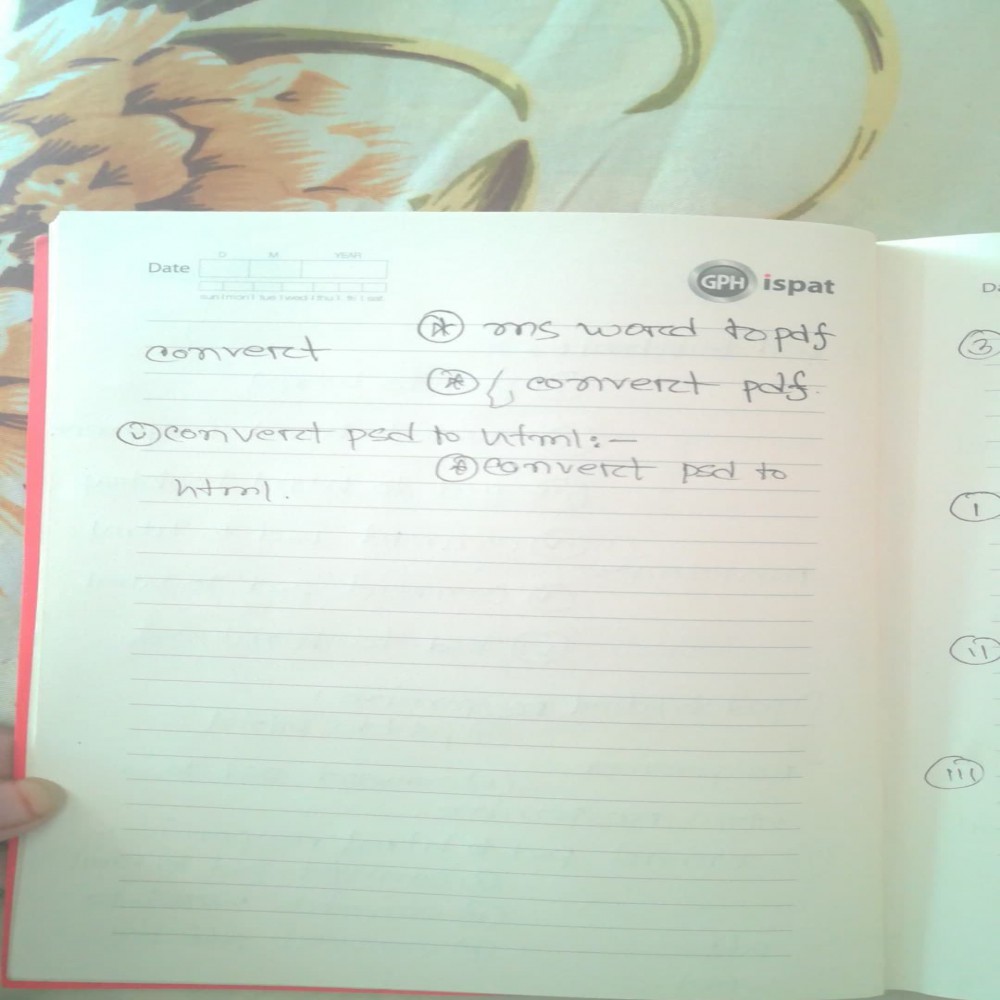 D M YEAR
Date
sun | mon | tue | wed | thu | fri | sat
GPH ispat
ms word to pdf
convert
convert pdf.
convert psd to html:-
convert psd to
html.
Da
3
i
ii
iii